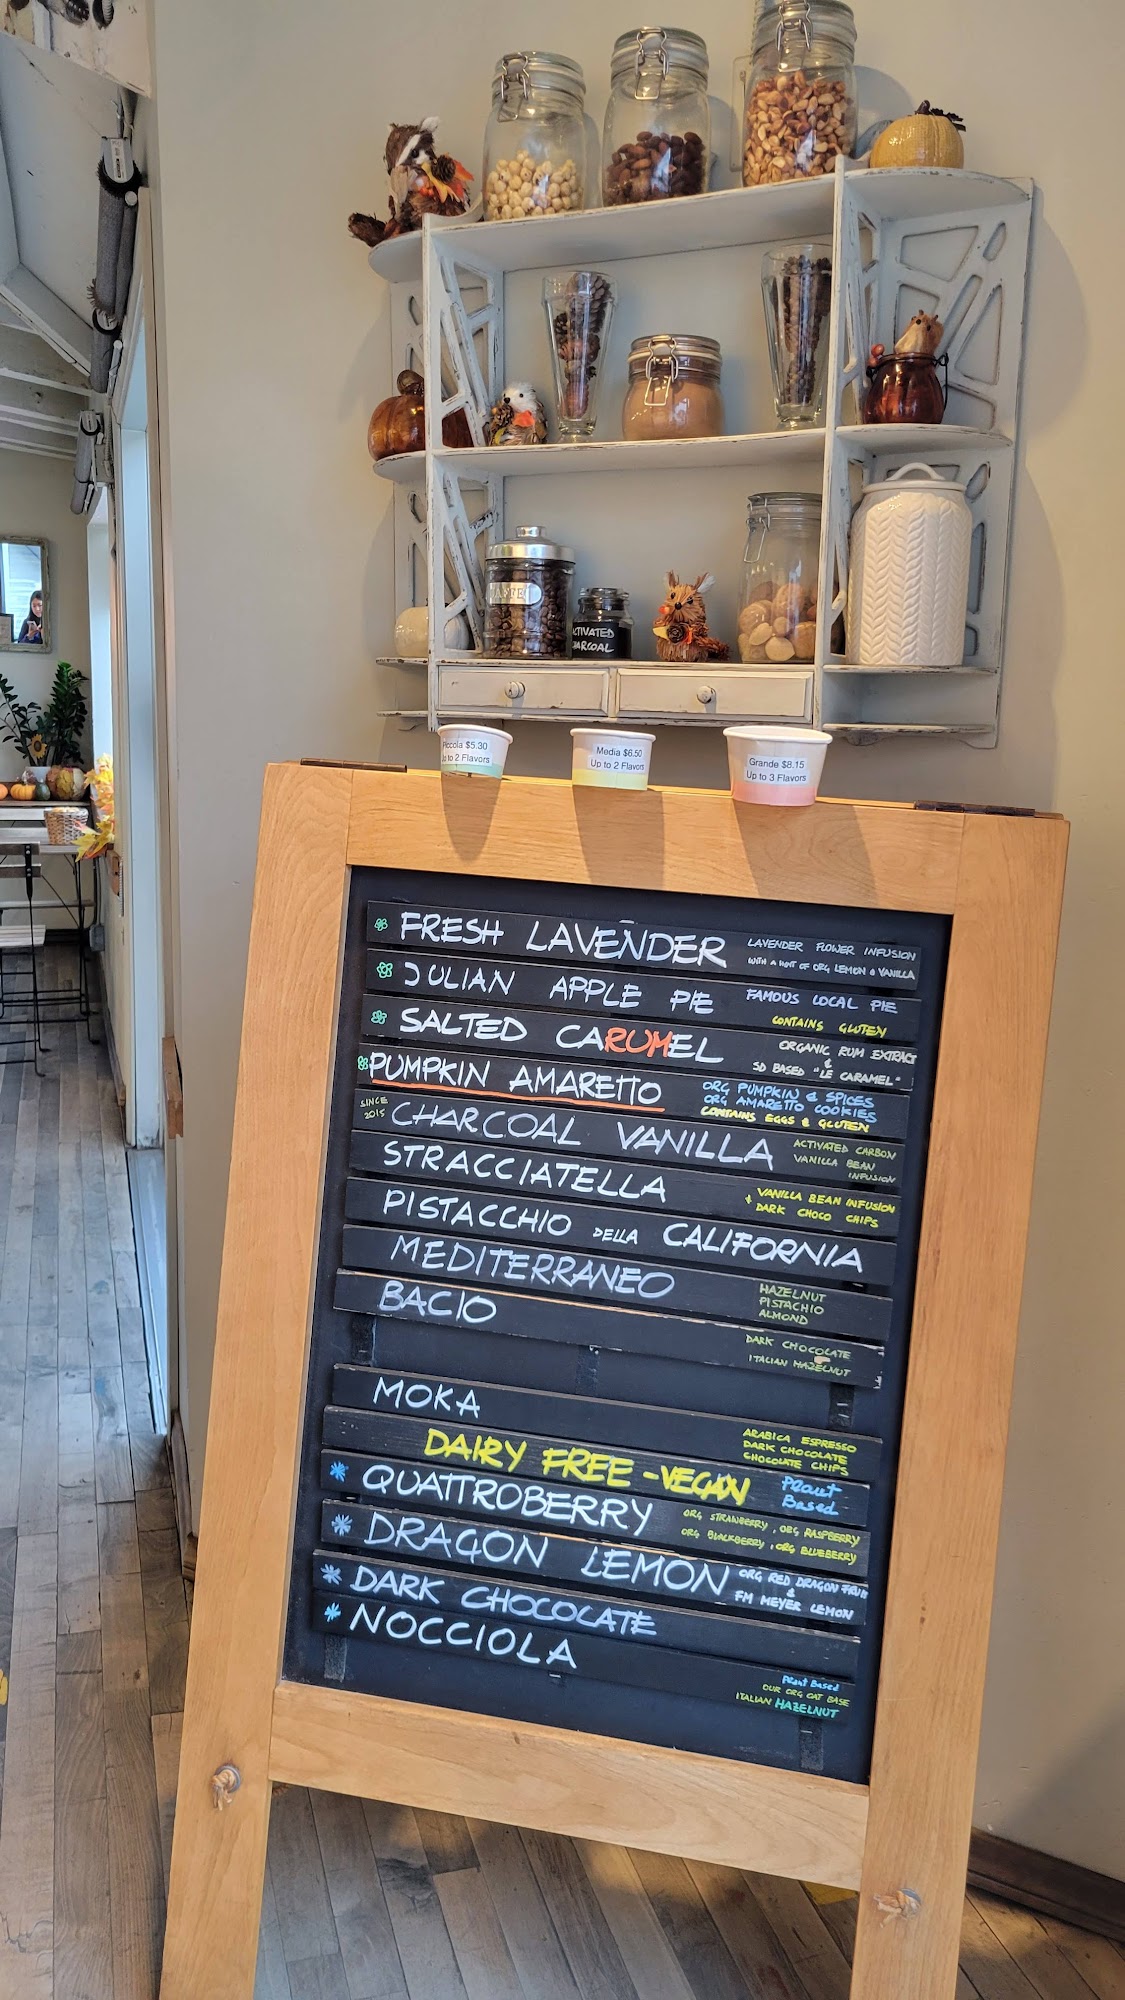 KAFFEE
ACTIVATED
CHARCOAL
Piccola $5.30
Up to 2 Flavors
Media $6.50
Up to 2 Flavors
Grande $8.15
Up to 3 Flavors
FRESH LAVENDER
LAVENDER FLOWER INFUSION
WITH A HINT OF ORG LEMON & VANILLA
JULIAN APPLE PIE
FAMOUS LOCAL PIE
CONTAINS GLUTEN
SALTED CARUMEL
ORGANIC RUM EXTRACT
&
SD BASED "LE CARAMEL"
PUMPKIN AMARETTO
ORG PUMPKIN & SPICES
ORG AMARETTO COOKIES
CONTAINS EGGS & GLUTEN
SINCE
2015
CHARCOAL VANILLA
ACTIVATED CARBON
VANILLA BEAN
INFUSION
STRACCIATELLA
VANILLA BEAN INFUSION
+ DARK CHOCO CHIPS
PISTACCHIO DELLA CALIFORNIA
MEDITERRANEO
HAZELNUT
PISTACHIO
ALMOND
BACIO
DARK CHOCOLATE
ITALIAN HAZELNUT
MOKA
ARABICA ESPRESSO
DARK CHOCOLATE
CHOCOLATE CHIPS
DAIRY FREE - VEGAN
Plant
Based
QUATTROBERRY
ORG STRAWBERRY, ORG RASPBERRY
ORG BLACKBERRY, ORG BLUEBERRY
DRAGON LEMON
ORG RED DRAGON FRUIT
&
FM MEYER LEMON
DARK CHOCOLATE
NOCCIOLA
Plant Based
OUR ORG OAT BASE
ITALIAN HAZELNUT